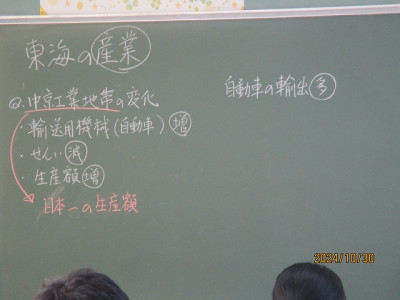 東海の産業
Q.中京工業地帯の変化
・輸送用機械(自動車)増
・せんい減
・生産額増
日本一の生産額
自動車の輸出多
2024/10/30